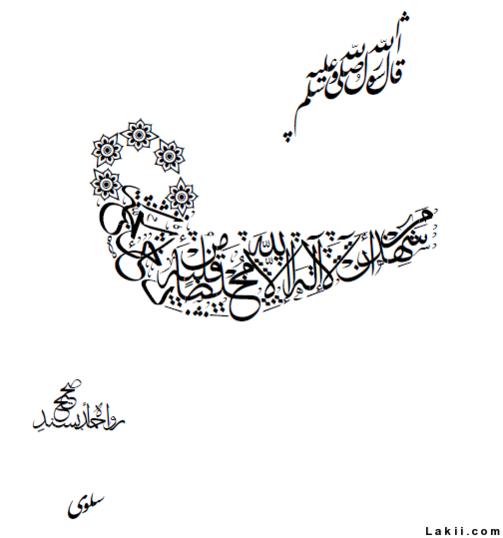 قال رسول الله صلى الله عليه وسلم
من شهد أن لا إله إلا الله مخلصا من قلبه
رواه أحمد بسند صحيح
سلوى
Lakii.com